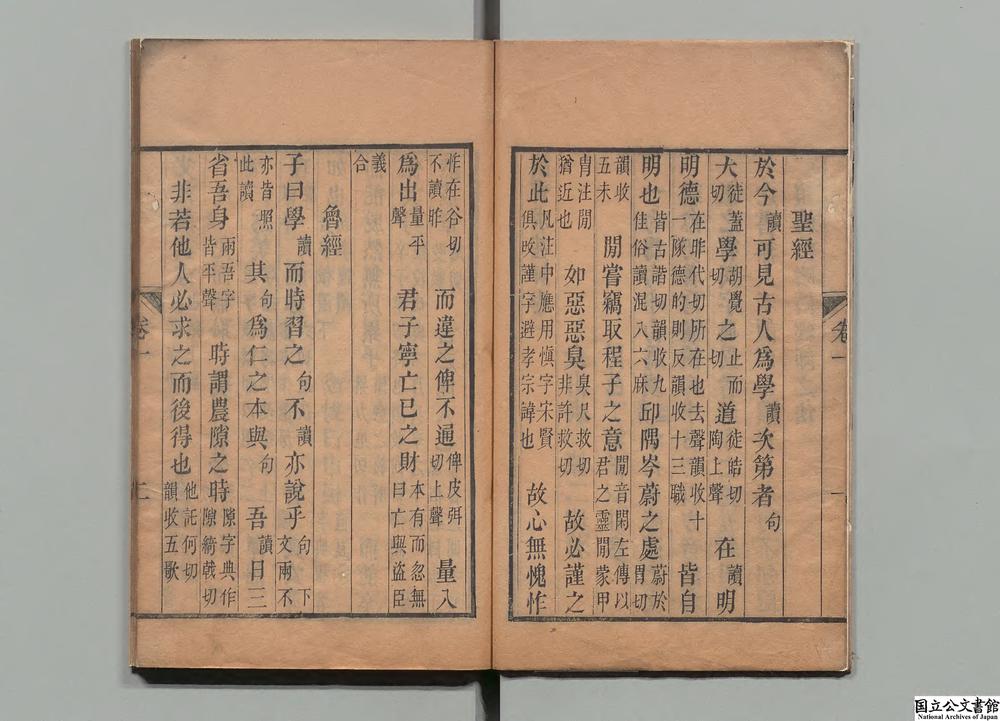 聖經
於今讀可見古人爲學讀次第者句
大徒蓋切學胡覺切之止而切道徒皓切陶上聲在讀明
明德在昨代切所在也去聲韻收十一隊德的則反韻收十三職皆自
明也皆古諧切韻收九佳俗讀混入六麻邱隅岑蔚之處蔚於胃切
韻收五未閒嘗竊取程子之意閒音閑左傳以君之靈閒蒙甲
胄注閒猶近也如惡惡臭臭尺救切非許救切故必謹之
於此凡注中應用愼字宋賢俱改謹字避孝宗諱也故心無愧怍
怍在谷切不讀昨而違之俾不通俾皮弭切上聲量入
爲出量平聲君子寧亡已之財本有而忽無曰亡與盜臣
義合
魯經
子曰學讀而時習之句不讀亦說乎句下文兩不
亦皆照此讀其句爲仁之本與句吾讀日三
省吾身兩吾字皆平聲時謂農隙之時隙字典作隙綺戟切
非若他人必求之而後得也他託何切韻收五歌
卷一
国立公文書館
National Archives of Japan